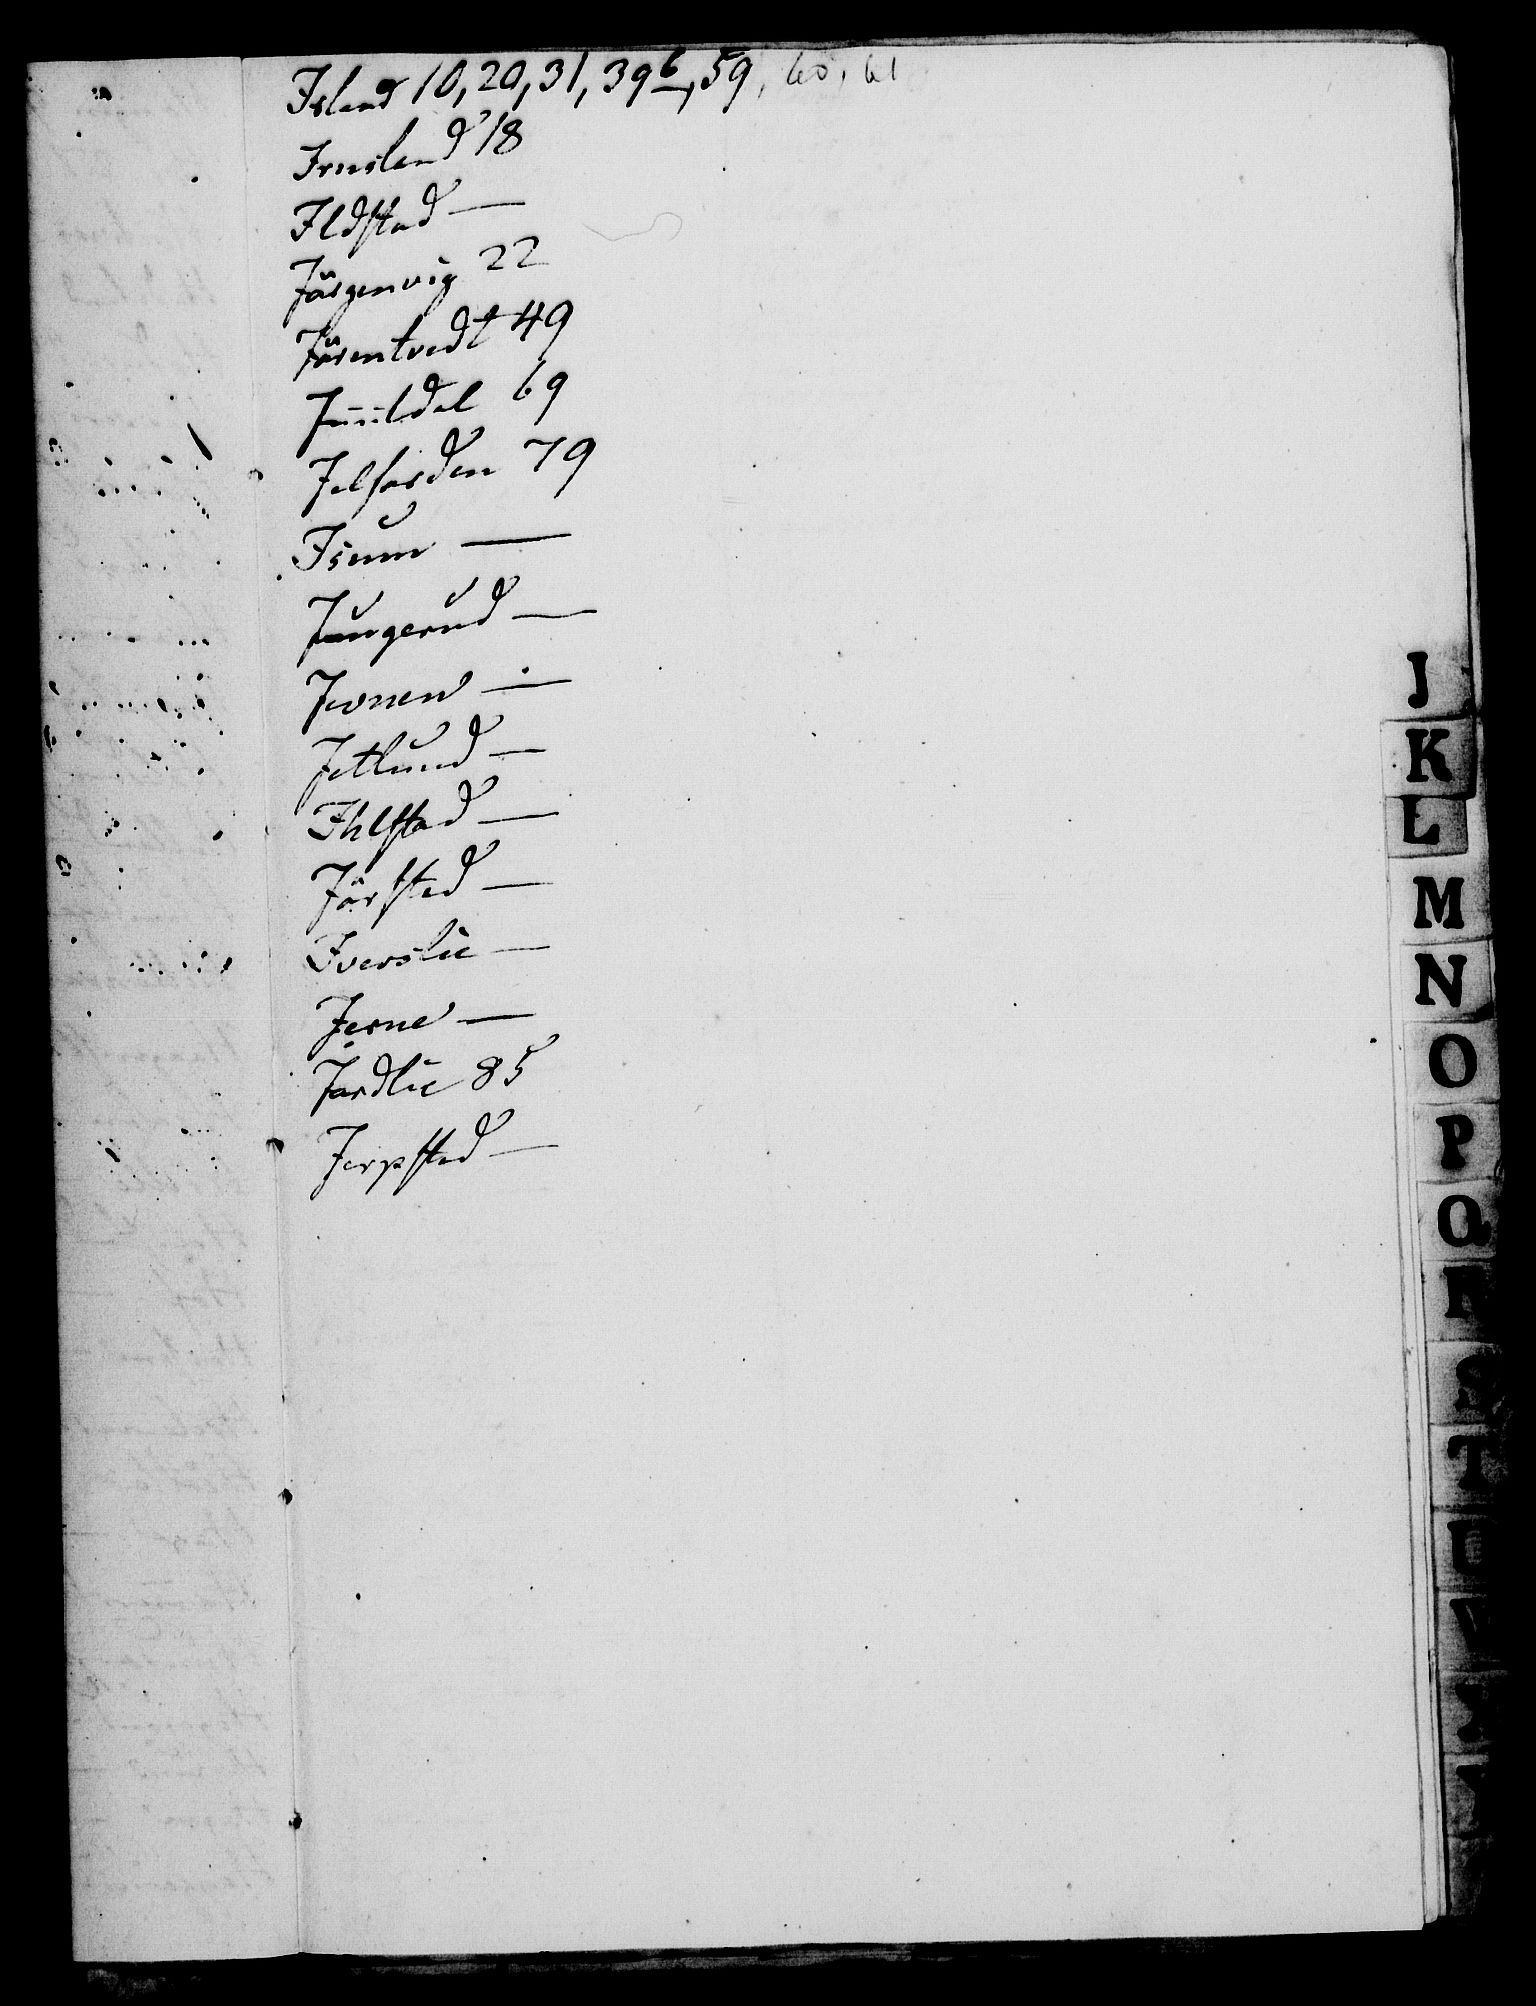 Island 10, 20, 31, 39 6, 59, 60, 61
Irnisland 18
Ildstad —
Jörgenvig 22
Jörentvedt 49
69
Jelsorden 79
Isum —
Jungerud —
Jevnen —
Jetlund —
Ihlstad —
Jörsted —
Iverslie —
Jerne —
Jordlie 85
Jerpsted —
J
K
L
M
N
O
P
Q
R
S
T
U